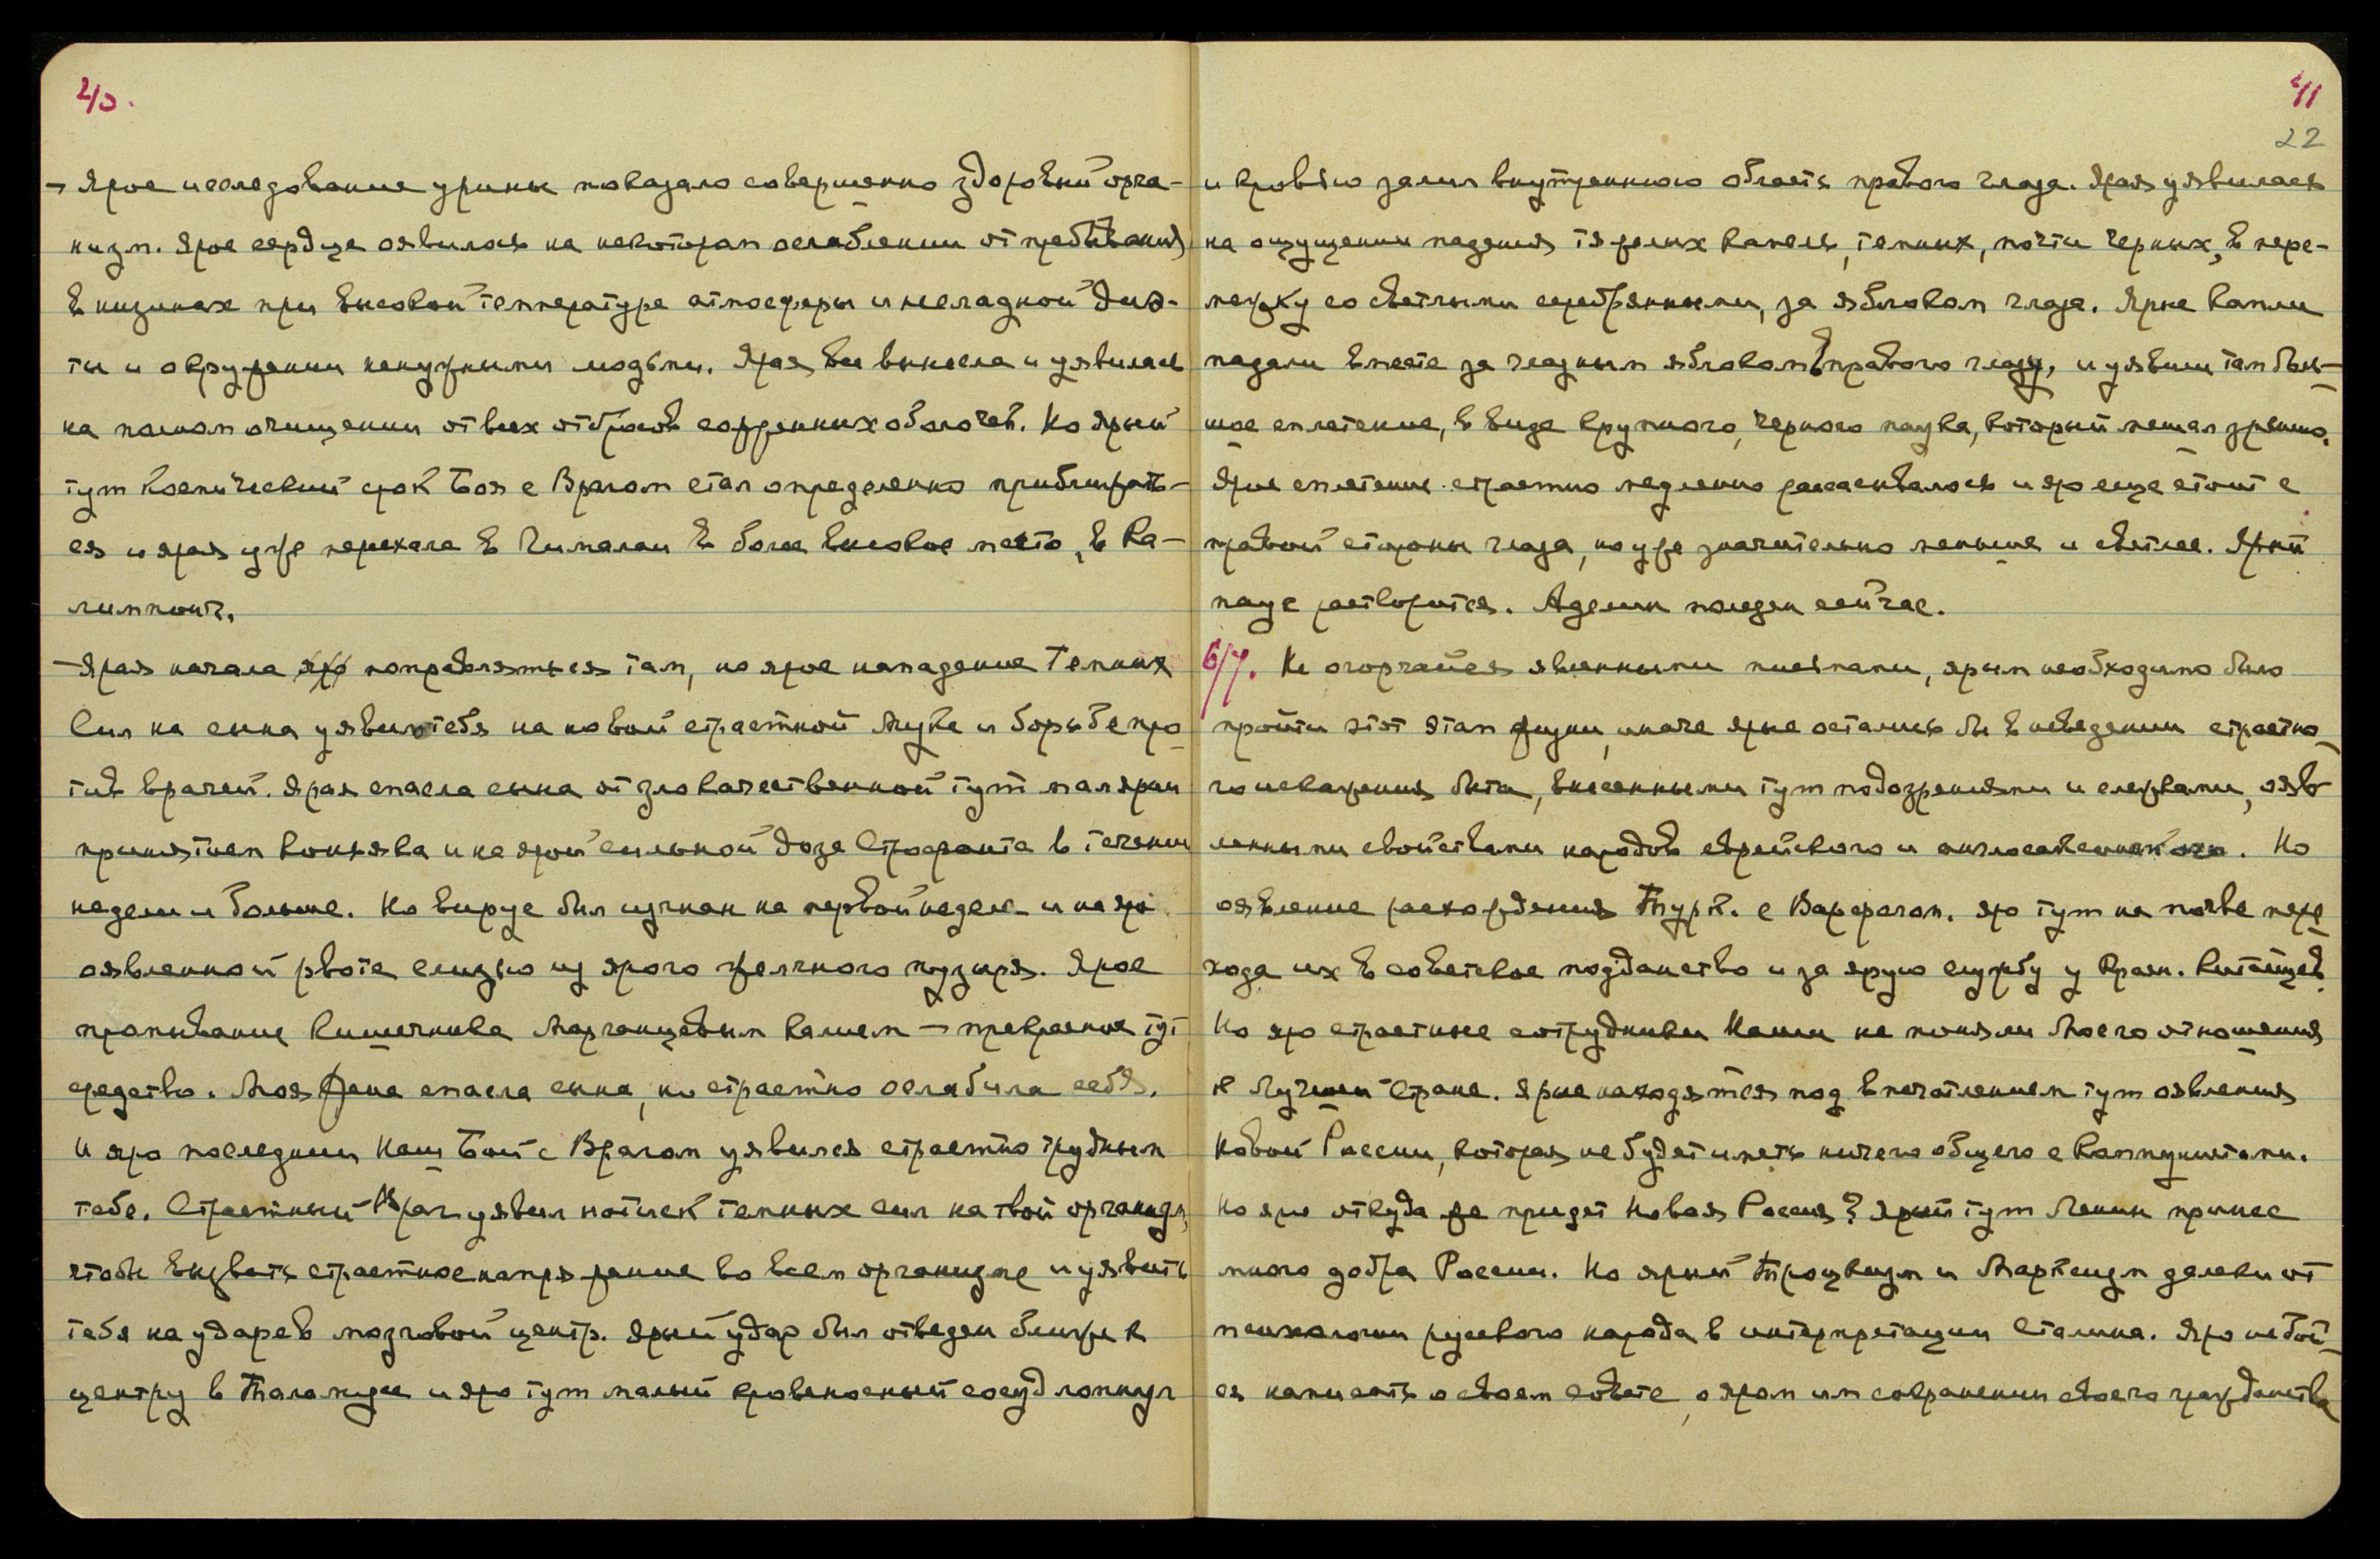 – Ярое исследование урины показало совершенно здоровый орга-
низм. Ярое сердце оявилось на некотором ослаблении от пребывания
в низинах при высокой температуре атмосферы и неладной дие-
ты и окружении ненужными людьми. Ярая все вынесла и уявилась
на полном очищении от всех отбросов сожженных оболочек. Но ярый
тут Космический срок Боя с Врагом стал определенно приближать-
ся и ярая уже переехала в Гималаи в более высокое место, в Ка-
лимпонг.
– Ярая начала поправляться там, но ярое нападение Темных
Сил на сына уявило тебя на новой страстной Муке и борьбе про-
тив врачей. Ярая спасла сына от злокачественной тут малярии
принятием коньяка и на ярой сильной дозе Строфанта в течении
недели и больше. Но вирус был изгнан на первой неделе и на яро
оявленной рвоте слизью из ярого желчного пузыря. Ярое
промывание кишечника Марганцевым калием – прекрасное тут
средство. Моя Жена спасла сына, но страстно ослабила себя.
И яро последний Наш Бой с Врагом уявился страстно трудным
тебе. Страстный Враг уявил натиск темных сил на твой организм,
чтобы вызвать страстное напряжение во всем организме и уявить
тебя на ударе в мозговой центр. Ярый удар был отведен ближе к
центру в Таламусе и яро тут малый кровеносный сосуд лопнул
и кровью залил внутреннюю область правого глаза. Ярая уявилась
на ощущении падения тяжелых капель, темных, почти черных, в пере-
межку со светлыми серебрянными, за яблоком глаза. Ярые капли
падали вместе за глазным яблоком правого глаза, и уявили там боль-
шое сплетение, в виде крупного, черного паука, который мешал зрению.
Ярое сплетение страстно медленно рассасывалось и яро еще стоит с
правой стороны глаза, но уже значительно меньше и светлее. Ярый
паук растворится. Аделин полезен сейчас.
6/7. Не огорчайся явленными письмами, ярым необходимо было
пройти этот этап жизни, иначе ярые остались бы в неведении страстно-
го искажения быта, внесенными тут подозрениями и слежками, ояв-
ленными свойствами народов еврейского и англосаксонского. Но
оявление расхождения Турк. с Варфаголом. яро тут на почве пере-
хода их в советское подданство и за ярую службу у Красн. Китайцев.
Но яро страстные сотрудники Наши не поняли Моего отношения
к Лучшей Стране. Ярые находятся под впечатлением тут оявления
Новой России, которая не будет иметь ничего общего с Коммунистами.
Но яро откуда же придет Новая Россия? Ярый тут Ленин принес
много добра России. Но ярый Троцкизм и Марксизм далеки от
психологии русского народа в интерпретации Сталина. Яро не бой-
ся написать о своем совете, о яром им сохранении своего гражданства